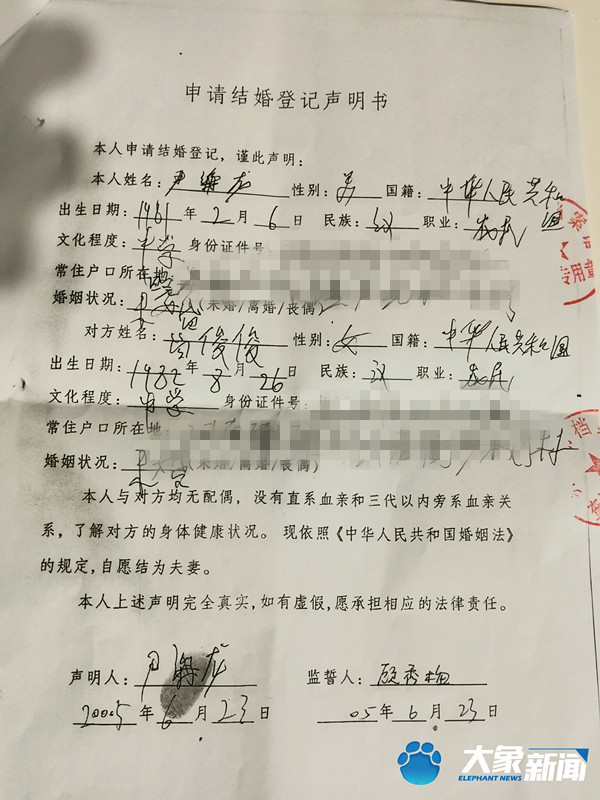 申请结婚登记声明书
本人申请结婚登记，谨此声明：
本人姓名：尹 龙 性别：男 国籍：中华人民共和国
出生日期：1981 年 2 月 6 日 民族：汉 职业：农民
文化程度：中学 身份证件号
常住户口所在地：
婚姻状况：未婚（未婚/离婚/丧偶）
对方姓名：俊俊 性别：女 国籍：中华人民共和国
出生日期：1982 年 8 月 26 日 民族：汉 职业：农民
文化程度：中学 身份证件号：
常住户口所在地：
婚姻状况：未婚（未婚/离婚/丧偶）
本人与对方均无配偶，没有直系血亲和三代以内旁系血亲关
系，了解对方的身体健康状况。现依照《中华人民共和国婚姻法》
的规定，自愿结为夫妻。
本人上述声明完全真实，如有虚假，愿承担相应的法律责任。
声明人：尹 龙 监誓人：顾秀梅
2005 年 6 月 23 日 05 年 6 月 23 日
专用章
档
大象新闻
ELEPHANT NEWS